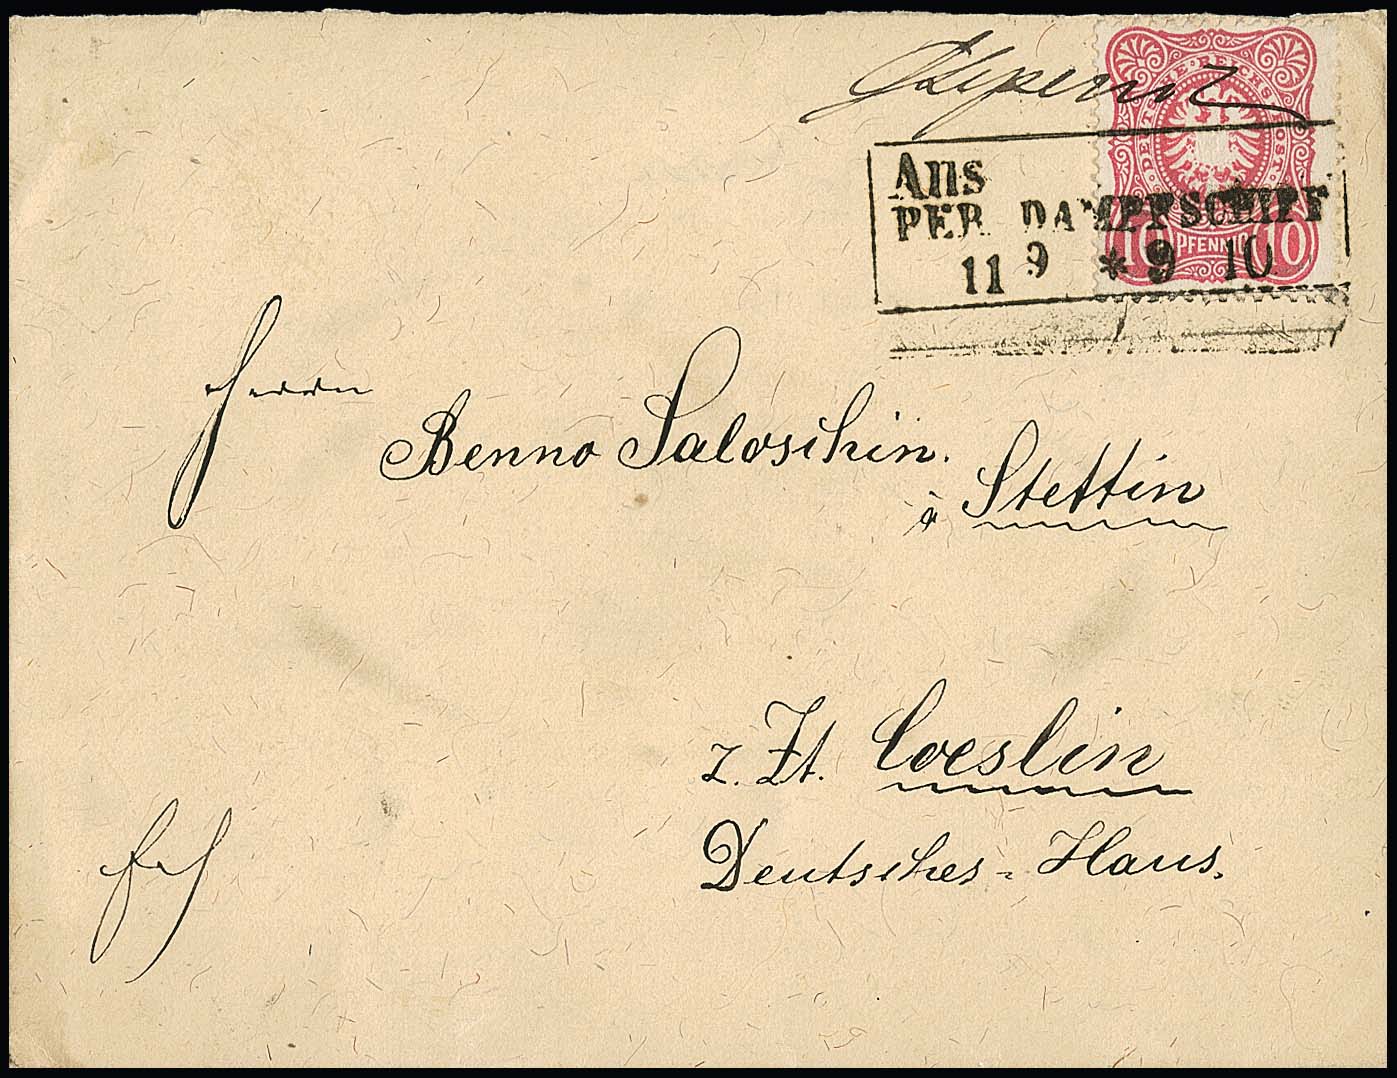 DEUTSCHE REICHS-POST
10 PFENNIG 10
Aus
PER DAMPFSCHIFF
11 9 * 9 10
Herrn
Benno Saloschin.
à Stettin
z. Zt. Coeslin
Deutsches-Haus.